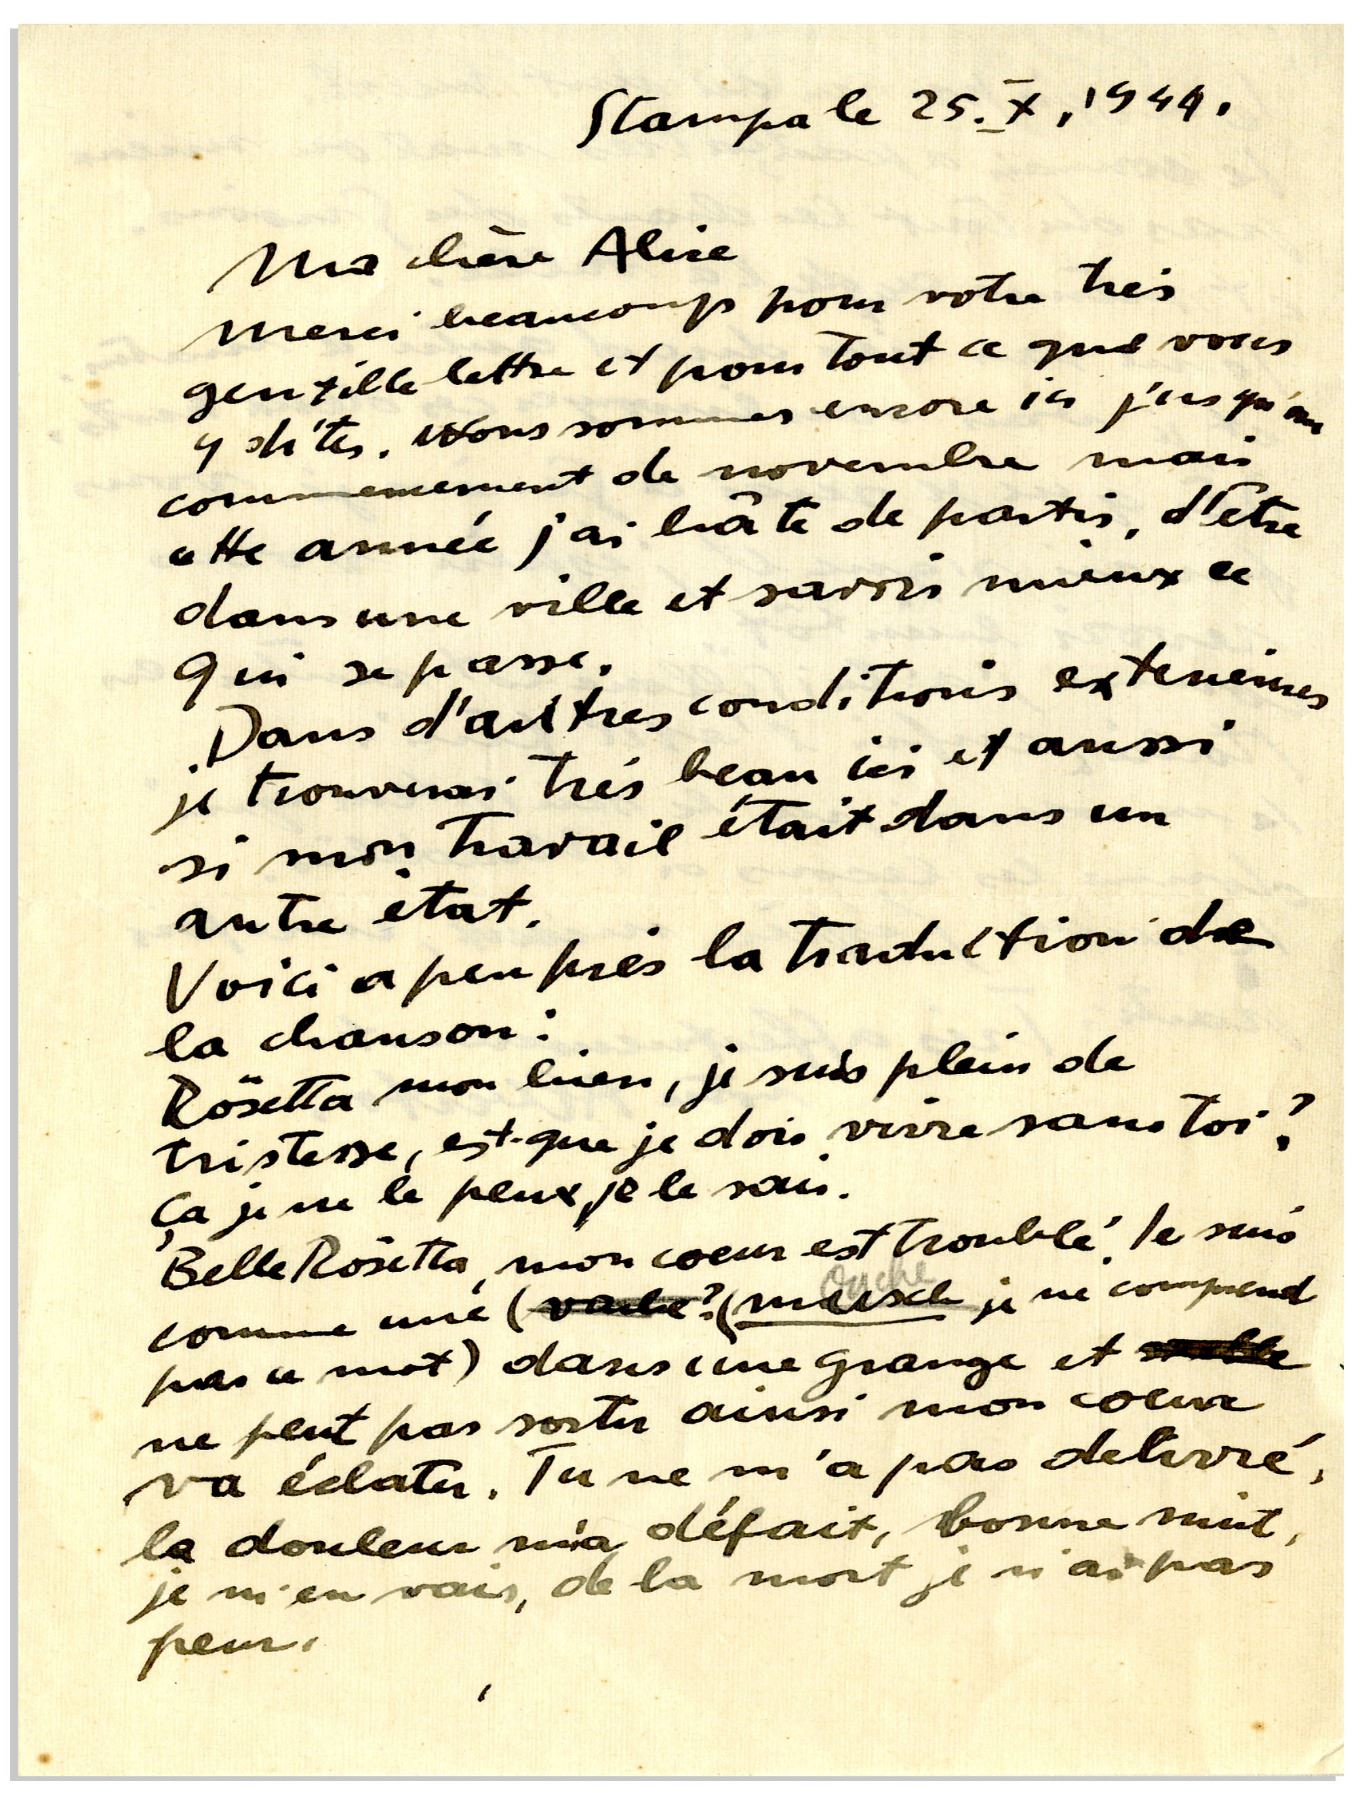 Stampa le 25.X.1944.
Ma chère Alice
Merci beaucoup pour votre très
gentille lettre et pour tout ce que vous
y dites. Nous sommes encore ici jusqu'au
commencement de novembre mais
cette année j'ai hâte de partir, d'être
dans une ville et savoir mieux ce
qui se passe.
Dans d'autres conditions exterieures
je trouverai très beau ici et aussi
si mon travail était dans un
autre état.
Voici a peu près la traduction de
la chanson:
Rösetta mon bien, je suis plein de
tristesse, est-que je dois vivre sans toi?
Ça je ne le peux, je le sais.
Belle Rösetta, mon coeur est troublé, Je suis
comme une (vache? (musch je ne comprend
pas ce mot) dans une grange et
ne peut pas sortir ainsi mon coeur
va éclater. Tu ne m'a pas delivré,
la douleur m'a défait, bonne nuit,
je m'en vais, de la mort je n'ai pas
peur.